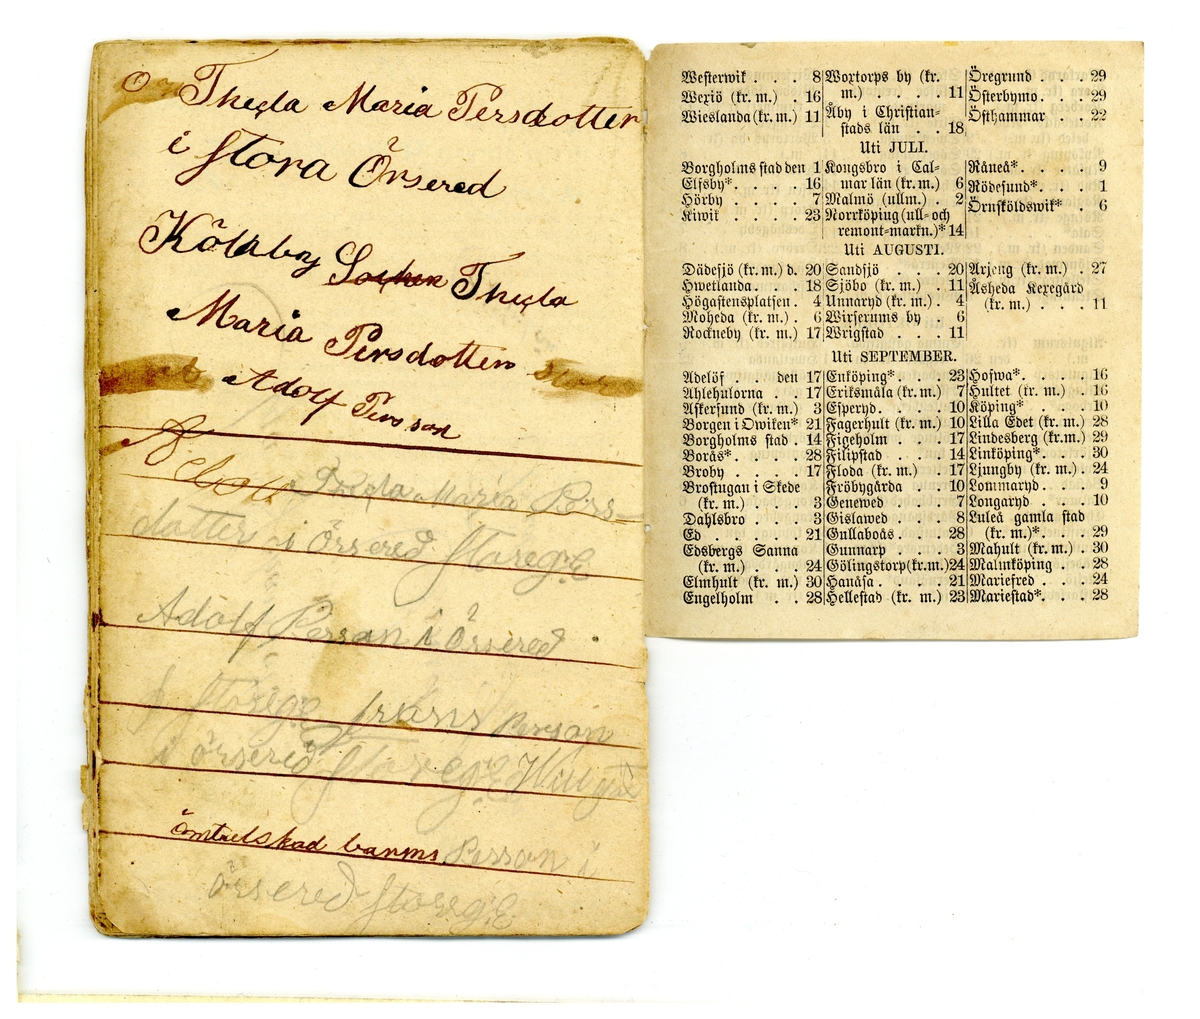 Thecla Maria Persdotter
i stora Örsered
Kölaby Socken Thecla
Maria Persdotter
Adolf Persson
Thecla Maria Pers-
dotter i Örsered storeg:E
Adolf Person i Örsered
storeg:E frans Person
i örsered storeg:E
barnns Person i
örsered storeg:E
Westerwik . . . 8
Wexiö (kr. m.) . 16
Wieslanda (kr. m.) 11
Woxtorps by (kr.
m.) . . . . 11
Åby i Christian-
stads län . . 18
Öregrund . . . 29
Österbymo. . . 29
Östhammar . . 22
Uti JULI.
Borgholms stad den 1
Elfsby*. . . . 16
Hörby . . . . 7
Kiwik . . . . 23
Kongsbro i Cal-
mar län (kr. m.) 6
Malmö (ullm.) . 2
Norrköping (ull- och
remont-markn.)* 14
Råneå*. . . . . 9
Rödesund*. . . 1
Örnsköldswik* . 6
Uti AUGUSTI.
Dädesjö (kr. m.) d. 20
Hwetlanda. . . 18
Högastensplatsen . 4
Moheda (kr. m.) . 6
Rockneby (kr. m.) 17
Sandsjö . . . 20
Sjöbo (kr. m.) . 11
Unnaryd (kr. m.) 4
Wirserums by . 6
Wrigstad . . 11
Arjeng (kr. m.) . 27
Åsheda Kexegård
(kr. m.) . . . 11
Uti SEPTEMBER.
Adelöf . . den 17
Ahlehulorna . . 17
Askersund (kr. m.) 3
Borgen i Owiken* 21
Borgholms stad . 14
Borås*. . . . 28
Broby . . . . 17
Brostugan i Skede
(kr. m.) . . . 3
Dahlsbro . . . 3
Ed . . . . . 21
Edsbergs Sanna
(kr. m.) . . . 24
Elmhult (kr. m.) 30
Engelholm . . 28
Enköping*. . . 23
Eriksmåla (kr. m.) 7
Esperyd. . . . 10
Fagerhult (kr. m.) 10
Figeholm . . . 17
Filipstad . . . 14
Floda (kr. m.) . 17
Fröbygårda . . 10
Genewed . . . 7
Gislawed . . . 8
Gullaboås . . 28
Gunnarp . . . 3
Gölingstorp (kr. m.) 24
Hanåsa. . . . 21
Hellestad (kr. m.) 23
Hofwa*. . . . 16
Hultet (kr. m.) . 16
Köping* . . . 10
Lilla Edet (kr. m.) 28
Lindesberg (kr. m.) 29
Linköping*. . . 30
Ljungby (kr. m.) . 24
Lommaryd. . . 9
Longaryd. . . 10
Luleå gamla stad
(kr. m.)*. . . 29
Mahult (kr. m.) . 30
Malmköping . . 28
Mariefred . . . 24
Mariestad*. . . 28